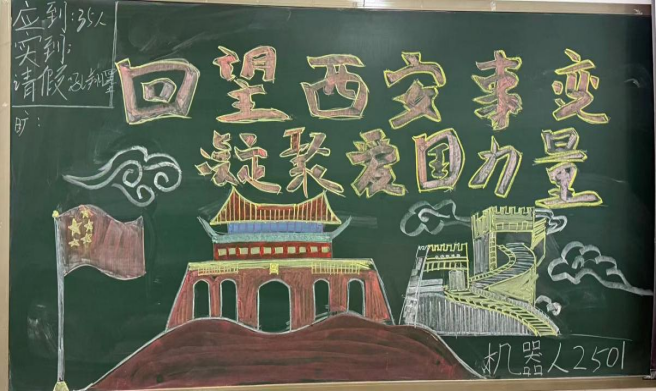 应到:35人
实到:
请假:
回望西安事变
凝聚爱国力量
机器人2501